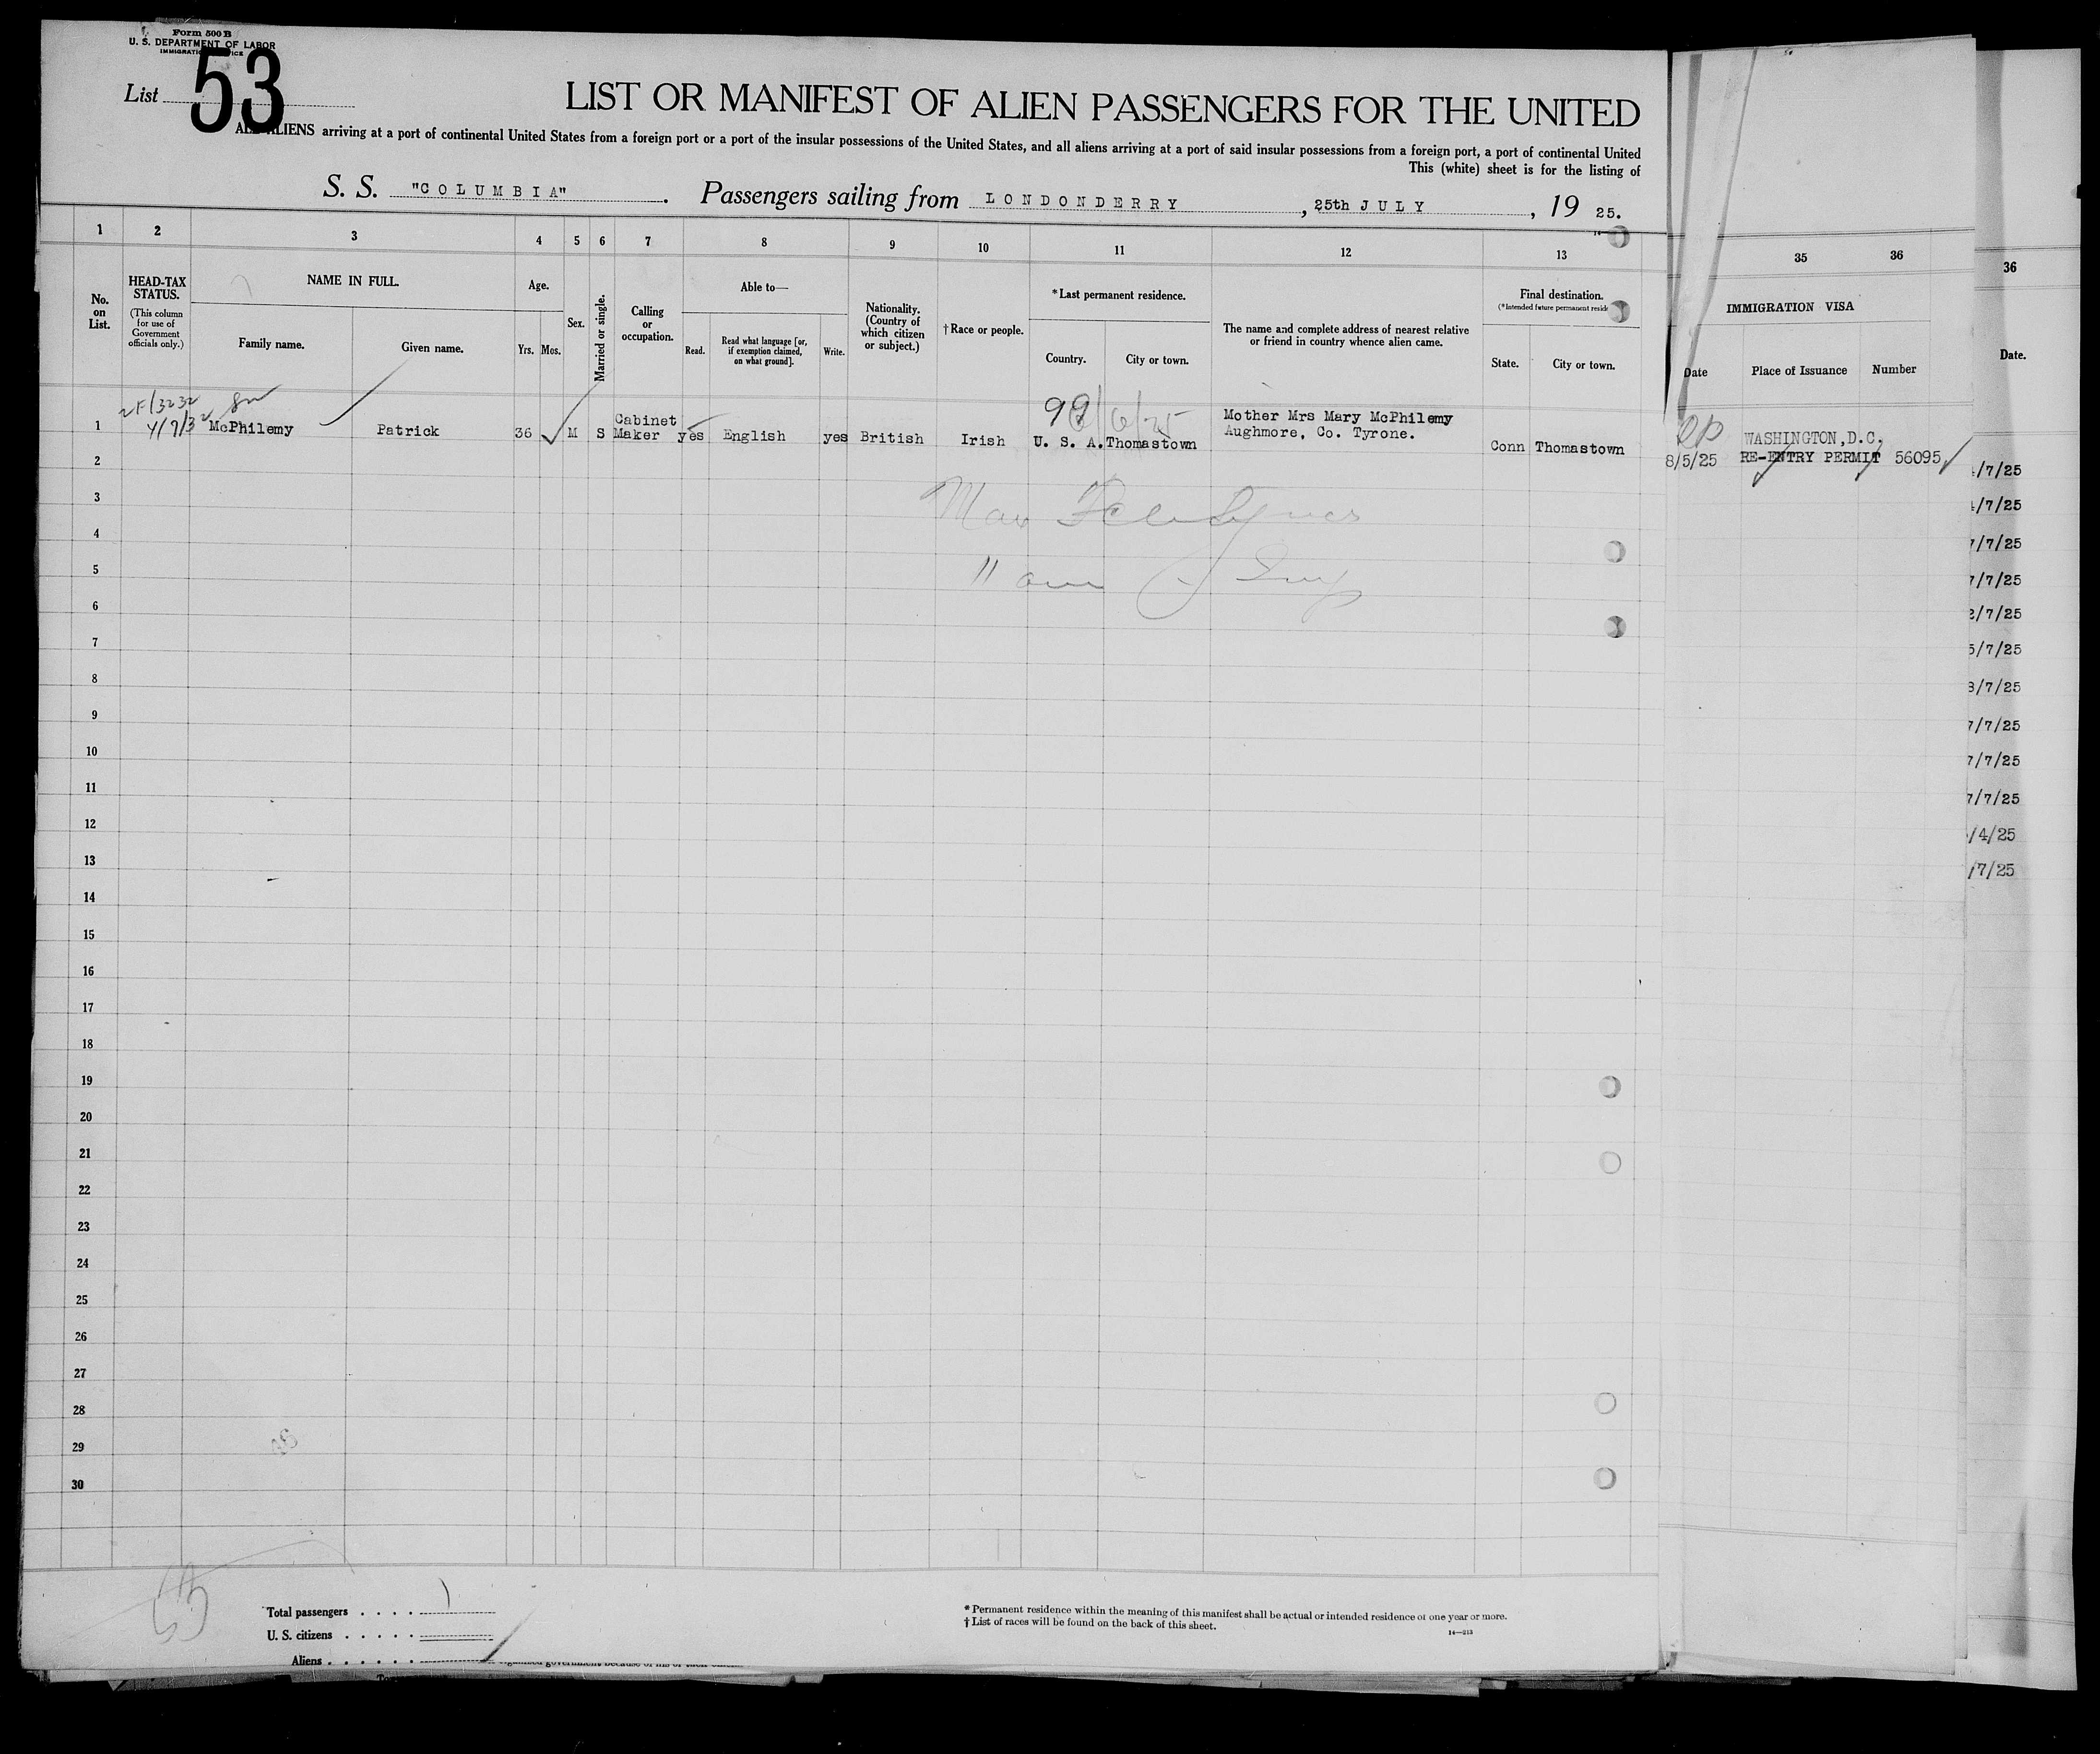 Form 500 B
U. S. DEPARTMENT OF LABOR
List 53
LIST OR MANIFEST OF ALIEN PASSENGERS FOR THE UNITED
ALL ALIENS arriving at a port of continental United States from a foreign port or a port of the insular possessions of the United States, and all aliens arriving at a port of said insular possessions from a foreign port, a port of continental United
This (white) sheet is for the listing of
S. S. "COLUMBIA". Passengers sailing from LONDONDERRY, 25th JULY, 19 25.
1 2 3 4 5 6 7 8 9 10 11 12 13 35 36 36
No. on List.
HEAD-TAX STATUS.
(This column for use of Government officials only.)
NAME IN FULL.
Family name.
Given name.
Age.
Yrs. Mos.
Sex.
Married or single.
Calling or occupation.
Able to—
Read.
Read what language [or, if exemption claimed, on what ground].
Write.
Nationality. (Country of which citizen or subject.)
†Race or people.
*Last permanent residence.
Country.
City or town.
The name and complete address of nearest relative or friend in country whence alien came.
Final destination.
(*Intended future permanent
State.
City or town.
IMMIGRATION VISA
Date
Place of Issuance
Number
Date.
1 McPhilemy Patrick 36 M S Cabinet Maker yes English yes British Irish U. S. A. Thomastown Mother Mrs Mary McPhilemy Aughmore, Co. Tyrone. Conn Thomastown 8/5/25 WASHINGTON,D.C. RE-ENTRY PERMIT 56095
99
2
3
4
11 am
5
6
7
8
9
10
11
12
13
14
15
16
17
18
19
20
21
22
23
24
25
26
27
28
29
30
/7/25
/7/25
7/7/25
7/7/25
2/7/25
5/7/25
3/7/25
7/7/25
7/7/25
7/7/25
/4/25
/7/25
Total passengers . . . . 1
U. S. citizens . . . . .
Aliens . . . . . .
* Permanent residence within the meaning of this manifest shall be actual or intended residence of one year or more.
† List of races will be found on the back of this sheet.
14—213